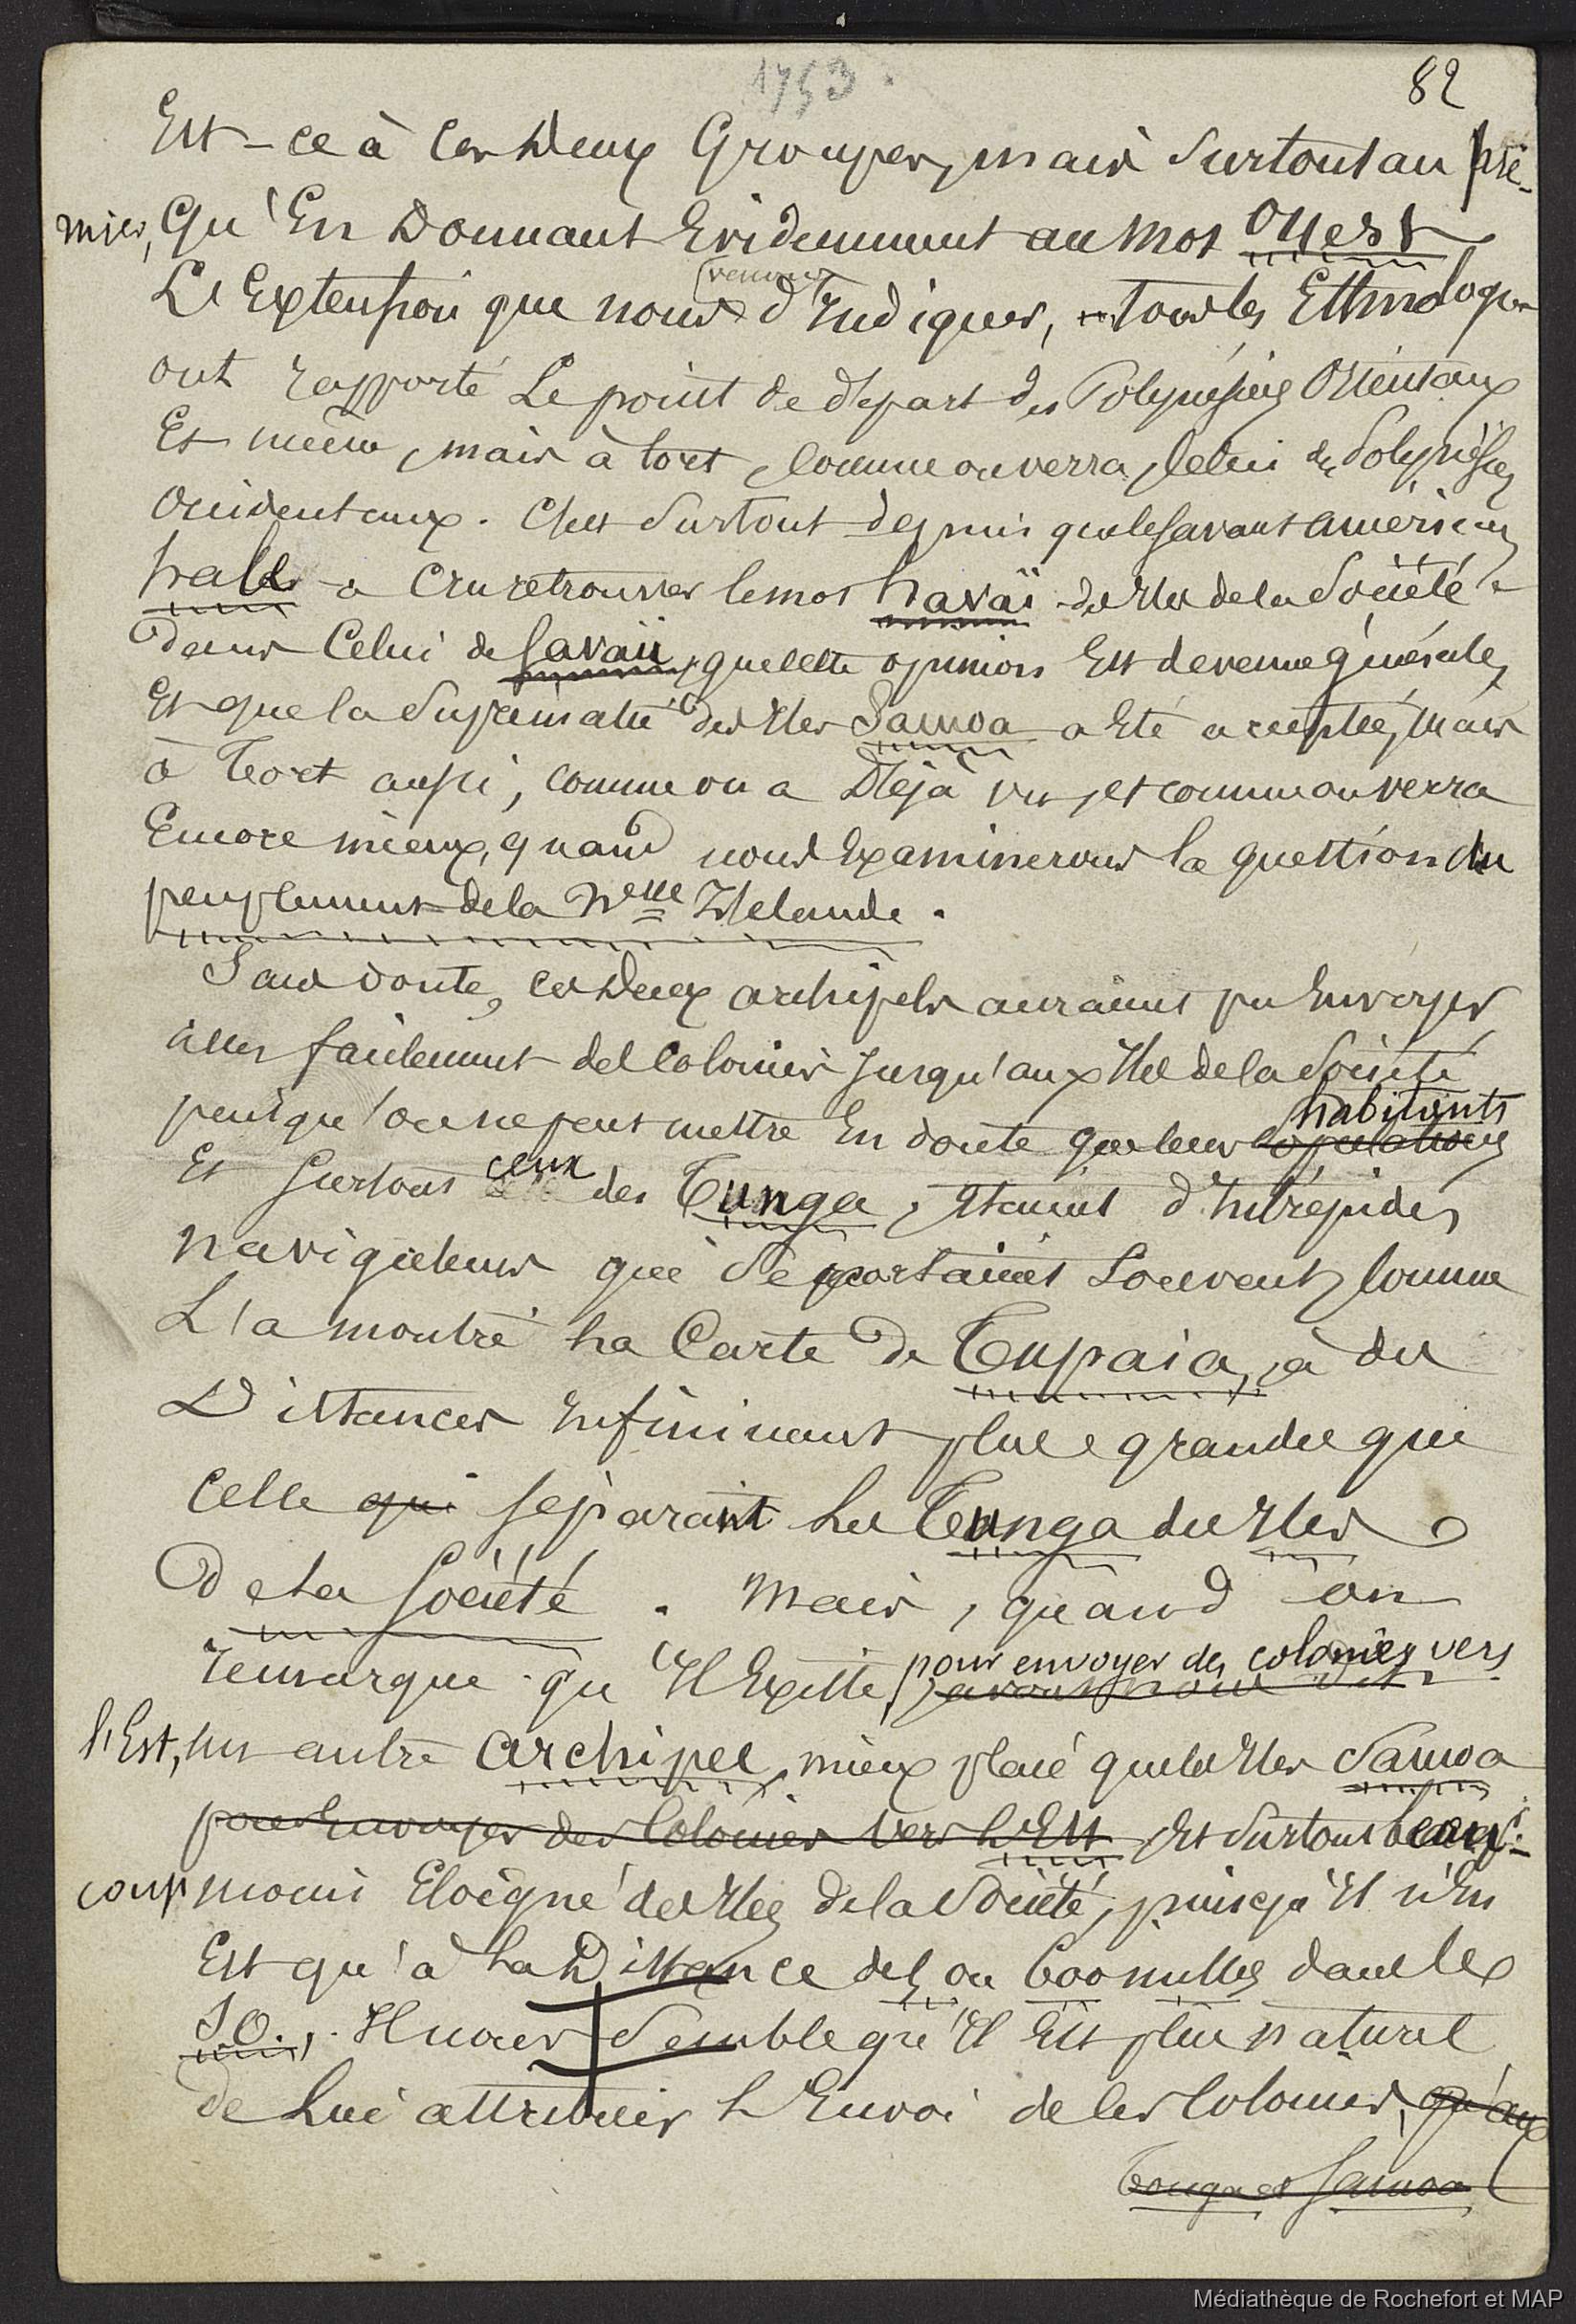 1753.
82
Est-ce à ces deux Groupes, mais surtout au pre-
mier, qu'En Donnant Evidemment au mot Ouest
L'Extension que nous venons d'Indiquer, tous les Ethnologues
ont rapporté Le point de départ des Polynésiens Orientaux
Et même, mais à tort, comme on verra, celui des Polynésiens
Occidentaux. C'est surtout depuis que le savant américain
hale a cru retrouver le mot havaï des Iles de la Société
dans Celui de Savaii, que cette opinion Est devenue générale,
Et que la suprématie des Iles Samoa a Eté acceptée, mais
à Tort aussi, comme on a Déjà vu, et comme on verra
Encore mieux, quand nous Examinerons la question du
peuplement de la Nelle Zélande.
Sans doute, ces deux archipels auraient pu Envoyer
assez facilement des Colonies Jusqu'aux Iles de la Société
puisqu'on ne peut mettre En doute que leurs populations habitants
Et surtout ceux des Tunga, étaient d'Intrépides
navigateurs qui se portaient Souvent, comme
L'a montré La Carte de Tupaia, à des
Distances Infiniment plus grandes que
Celle qui séparant Les Tunga des Iles
De La Société. Mais, quand on
remarque qu'Il Existe, pour envoyer des colonies vers
l'Est, un autre archipel, mieux placé que les Iles Samoa
pour Envoyer des Colonies vers L'Est, Et surtout beau-
coup moins Eloigné des Iles de la Société, puisqu'Il n'En
Est qu'à La Distance de 5 ou 600 milles dans le
SO., Il nous semble qu'Il Est plus naturel
de Lui attribuer L'Envoi de ces Colonies, qu'aux
Tonga et Samoa
Médiathèque de Rochefort et MAP